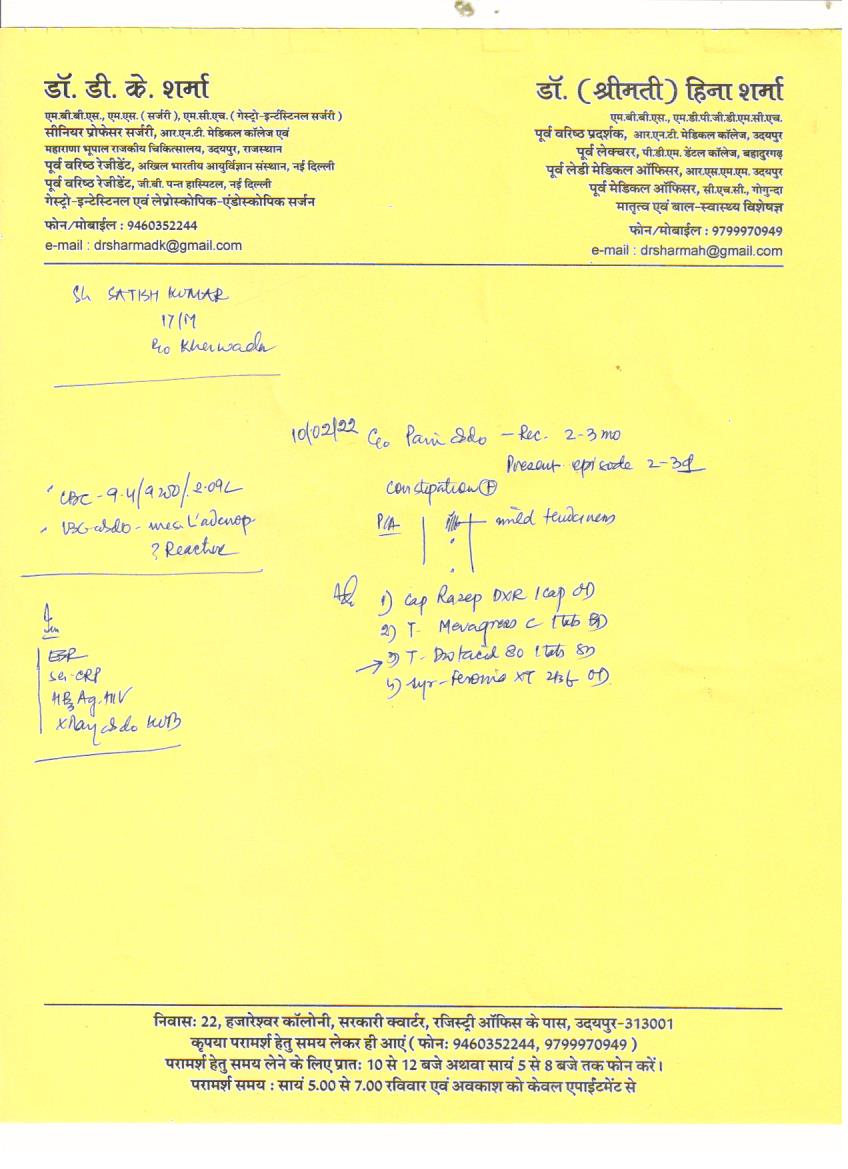 डॉ. डी. के. शर्मा
एम.बी.बी.एस., एम.एस. ( सर्जरी ), एम.सी.एच. ( गेस्ट्रो-इन्टेंस्टिनल सर्जरी )
सीनियर प्रोफेसर सर्जरी, आर.एन.टी. मेडिकल कॉलेज एवं
महाराणा भूपाल राजकीय चिकित्सालय, उदयपुर, राजस्थान
पूर्व वरिष्ठ रेजीडेंट, अखिल भारतीय आयुर्विज्ञान संस्थान, नई दिल्ली
पूर्व वरिष्ठ रेजीडेंट, जी.बी. पन्त हास्पिटल, नई दिल्ली
गेस्ट्रो-इन्टेस्टिनल एवं लेप्रोस्कोपिक-एंडोस्कोपिक सर्जन
फोन/मोबाईल : 9460352244
e-mail : drsharmadk@gmail.com
डॉ. (श्रीमती) हिना शर्मा
एम.बी.बी.एस., एम.डी.पी.जी.डी.एम.सी.एच.
पूर्व वरिष्ठ प्रदर्शक, आर.एन.टी. मेडिकल कॉलेज, उदयपुर
पूर्व लेक्चरर, पी.डी.एम. डेंटल कॉलेज, बहादुरगढ़
पूर्व लेडी मेडिकल ऑफिसर, आर.एस.एम.एम. उदयपुर
पूर्व मेडिकल ऑफिसर, सी.एच.सी., गोगुन्दा
मातृत्व एवं बाल-स्वास्थ्य विशेषज्ञ
फोन/मोबाईल : 9799970949
e-mail : drsharmah@gmail.com
Sh SATISH KUMAR
17/M
R/o Kherwada
10/02/22 C/o Pain abdo - Rec. 2-3 mo
Present episode 2-3d
Constipation (+)
P/A mild tenderness
CBC - 9.4/9200/2.09L
USG abdo - mes L'adenop
? Reactive
Adv
ESR
Ser CRP
HBsAg, HIV
X Ray abdo KUB
Adv 1) Cap Razep DXR 1 cap OD
2) T. C 1 tab BD
3) T. 80 1 tab BD
4) Syr - XT 2 OD
निवास: 22, हजारेश्वर कॉलोनी, सरकारी क्वार्टर, रजिस्ट्री ऑफिस के पास, उदयपुर-313001
कृपया परामर्श हेतु समय लेकर ही आएं ( फोन: 9460352244, 9799970949 )
परामर्श हेतु समय लेने के लिए प्रात: 10 से 12 बजे अथवा सायं 5 से 8 बजे तक फोन करें।
परामर्श समय : सायं 5.00 से 7.00 रविवार एवं अवकाश को केवल एपाईंटमेंट से